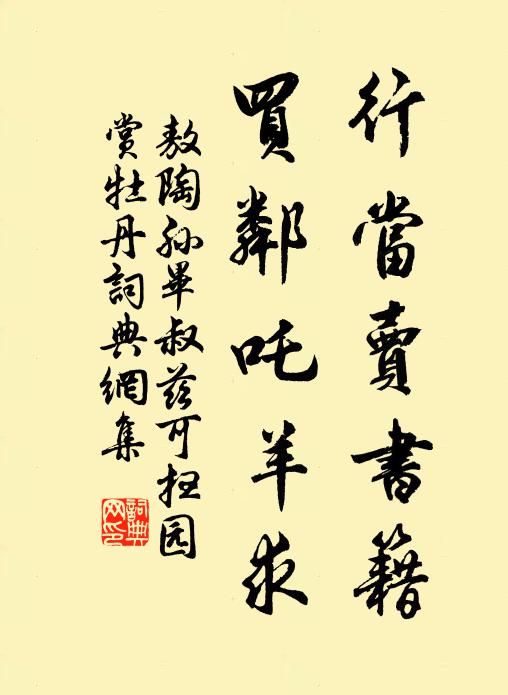 行當賣書籍
買鄰吒羊求
敖陶孫畢叔茲可园
賞牡丹詞典網集
詞典网印